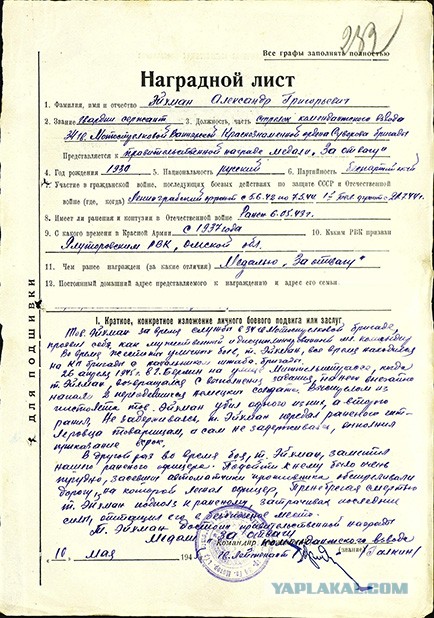 Все графы заполнять полностью
Наградной лист
1. Фамилия, имя и отчество Эйхман Александр Григорьевич
2. Звание гвардии сержант 3. Должность, часть стрелок комендантского взвода
34 гв. Мотострелковой Краснознаменной ордена Суворова бригады
Представляется к правительственной награде медали "За отвагу"
4. Год рождения 5. Национальность русский 6. Партийность беспартийный
7. Участие в гражданской войне, последующих боевых действиях по защите СССР и Отечественной
войне (где, когда) Ленинградский фронт с
8. Имеет ли ранения и контузии в Отечественной войне Ранен 6.05.43 г.
9. С какого времени в Красной Армии с 1937 года 10. Каким РВК призван
Ялуторовским РВК, Омской обл.
11. Чем ранее награжден (за какие отличия) Медалью "За отвагу"
12. Постоянный домашний адрес представляемого к награждению и адрес его семьи
ДЛЯ ПОДШИВКИ
I. Краткое, конкретное изложение личного боевого подвига или заслуг
Тов. Эйхман за время службы в 34 гв. Мотострелковой бригаде,
проявил себя, как мужественный и дисциплинированный мл. командир
Во время жестоких уличных боев, т. Эйхман, все время находился
на КП бригады
26 апреля 1945 г. в г. Берлин на улице когда
т. Эйхман, возвращался с выполнения задания, на него внезапно
напали немецких солдат. Выстрелом из
пистолета тов. Эйхман убил одного из них, а второго
ранил. Не задерживаясь, т. Эйхман передал раненого гит-
леровца товарищам, а сам не задерживаясь, выполнил
приказание в срок.
В другой раз во время боя, т. Эйхман, заметил
нашего раненого офицера. Подойти к нему было очень
трудно, засевшие автоматчики противника обстреливали
дорогу, на которой лежал офицер. Пренебрегая смертью
т. Эйхман подполз к раненому, затрачивая последние
силы, оттащил его в безопасное место.
Т. Эйхман достоин правительственной награды
Медали "За отвагу"
Командир комендантского взвода
10 мая 194 гв. лейтенант (звание) /Галкин/
YAPLAKAL.COM